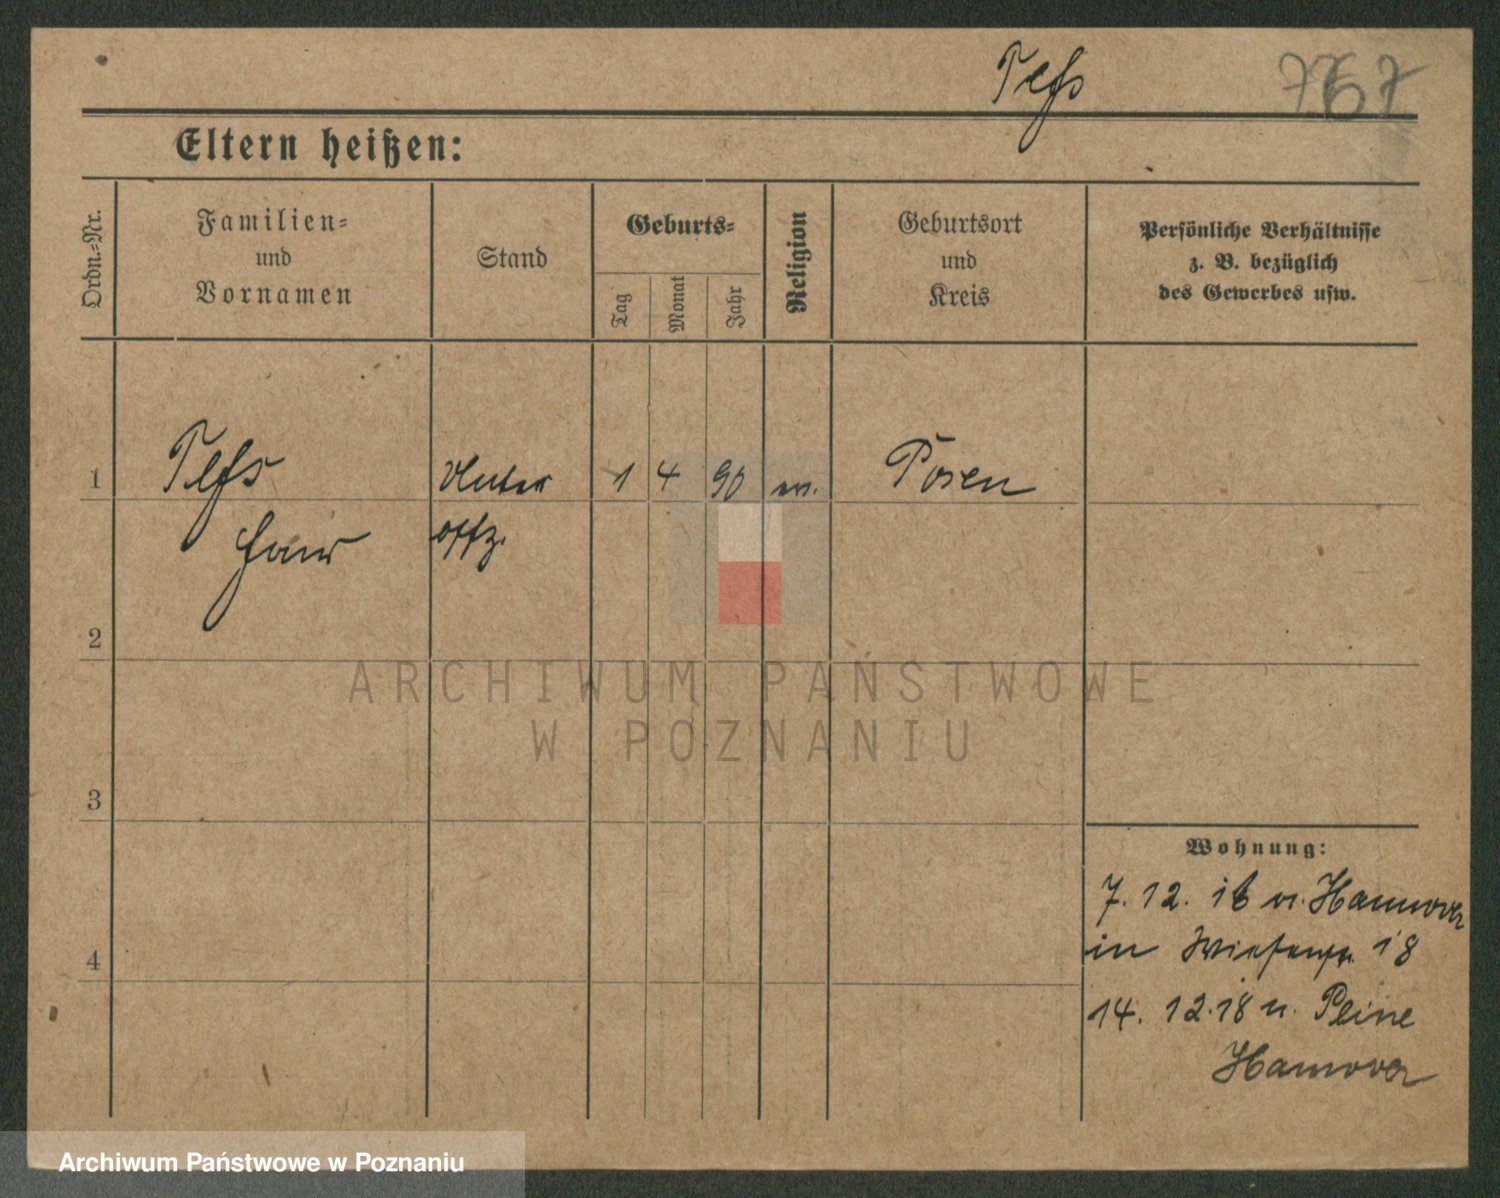 Tess 767
Eltern heißen:
Ordn.-Nr.
Familien-
und
Vornamen
Stand
Geburts-
Tag
Monat
Jahr
Religion
Geburtsort
und
Kreis
Persönliche Verhältnisse
z. B. bezüglich
des Gewerbes usw.
1 Tess Unter 1 4 90 ev. Posen
offz.
2
ARCHIWUM PAŃSTWOWE
W POZNANIU
3
Wohnung:
7. 12. 18 v. Hannover
in 18
4
14. 12. 18 n. Peine
Hannover
Archiwum Państwowe w Poznaniu